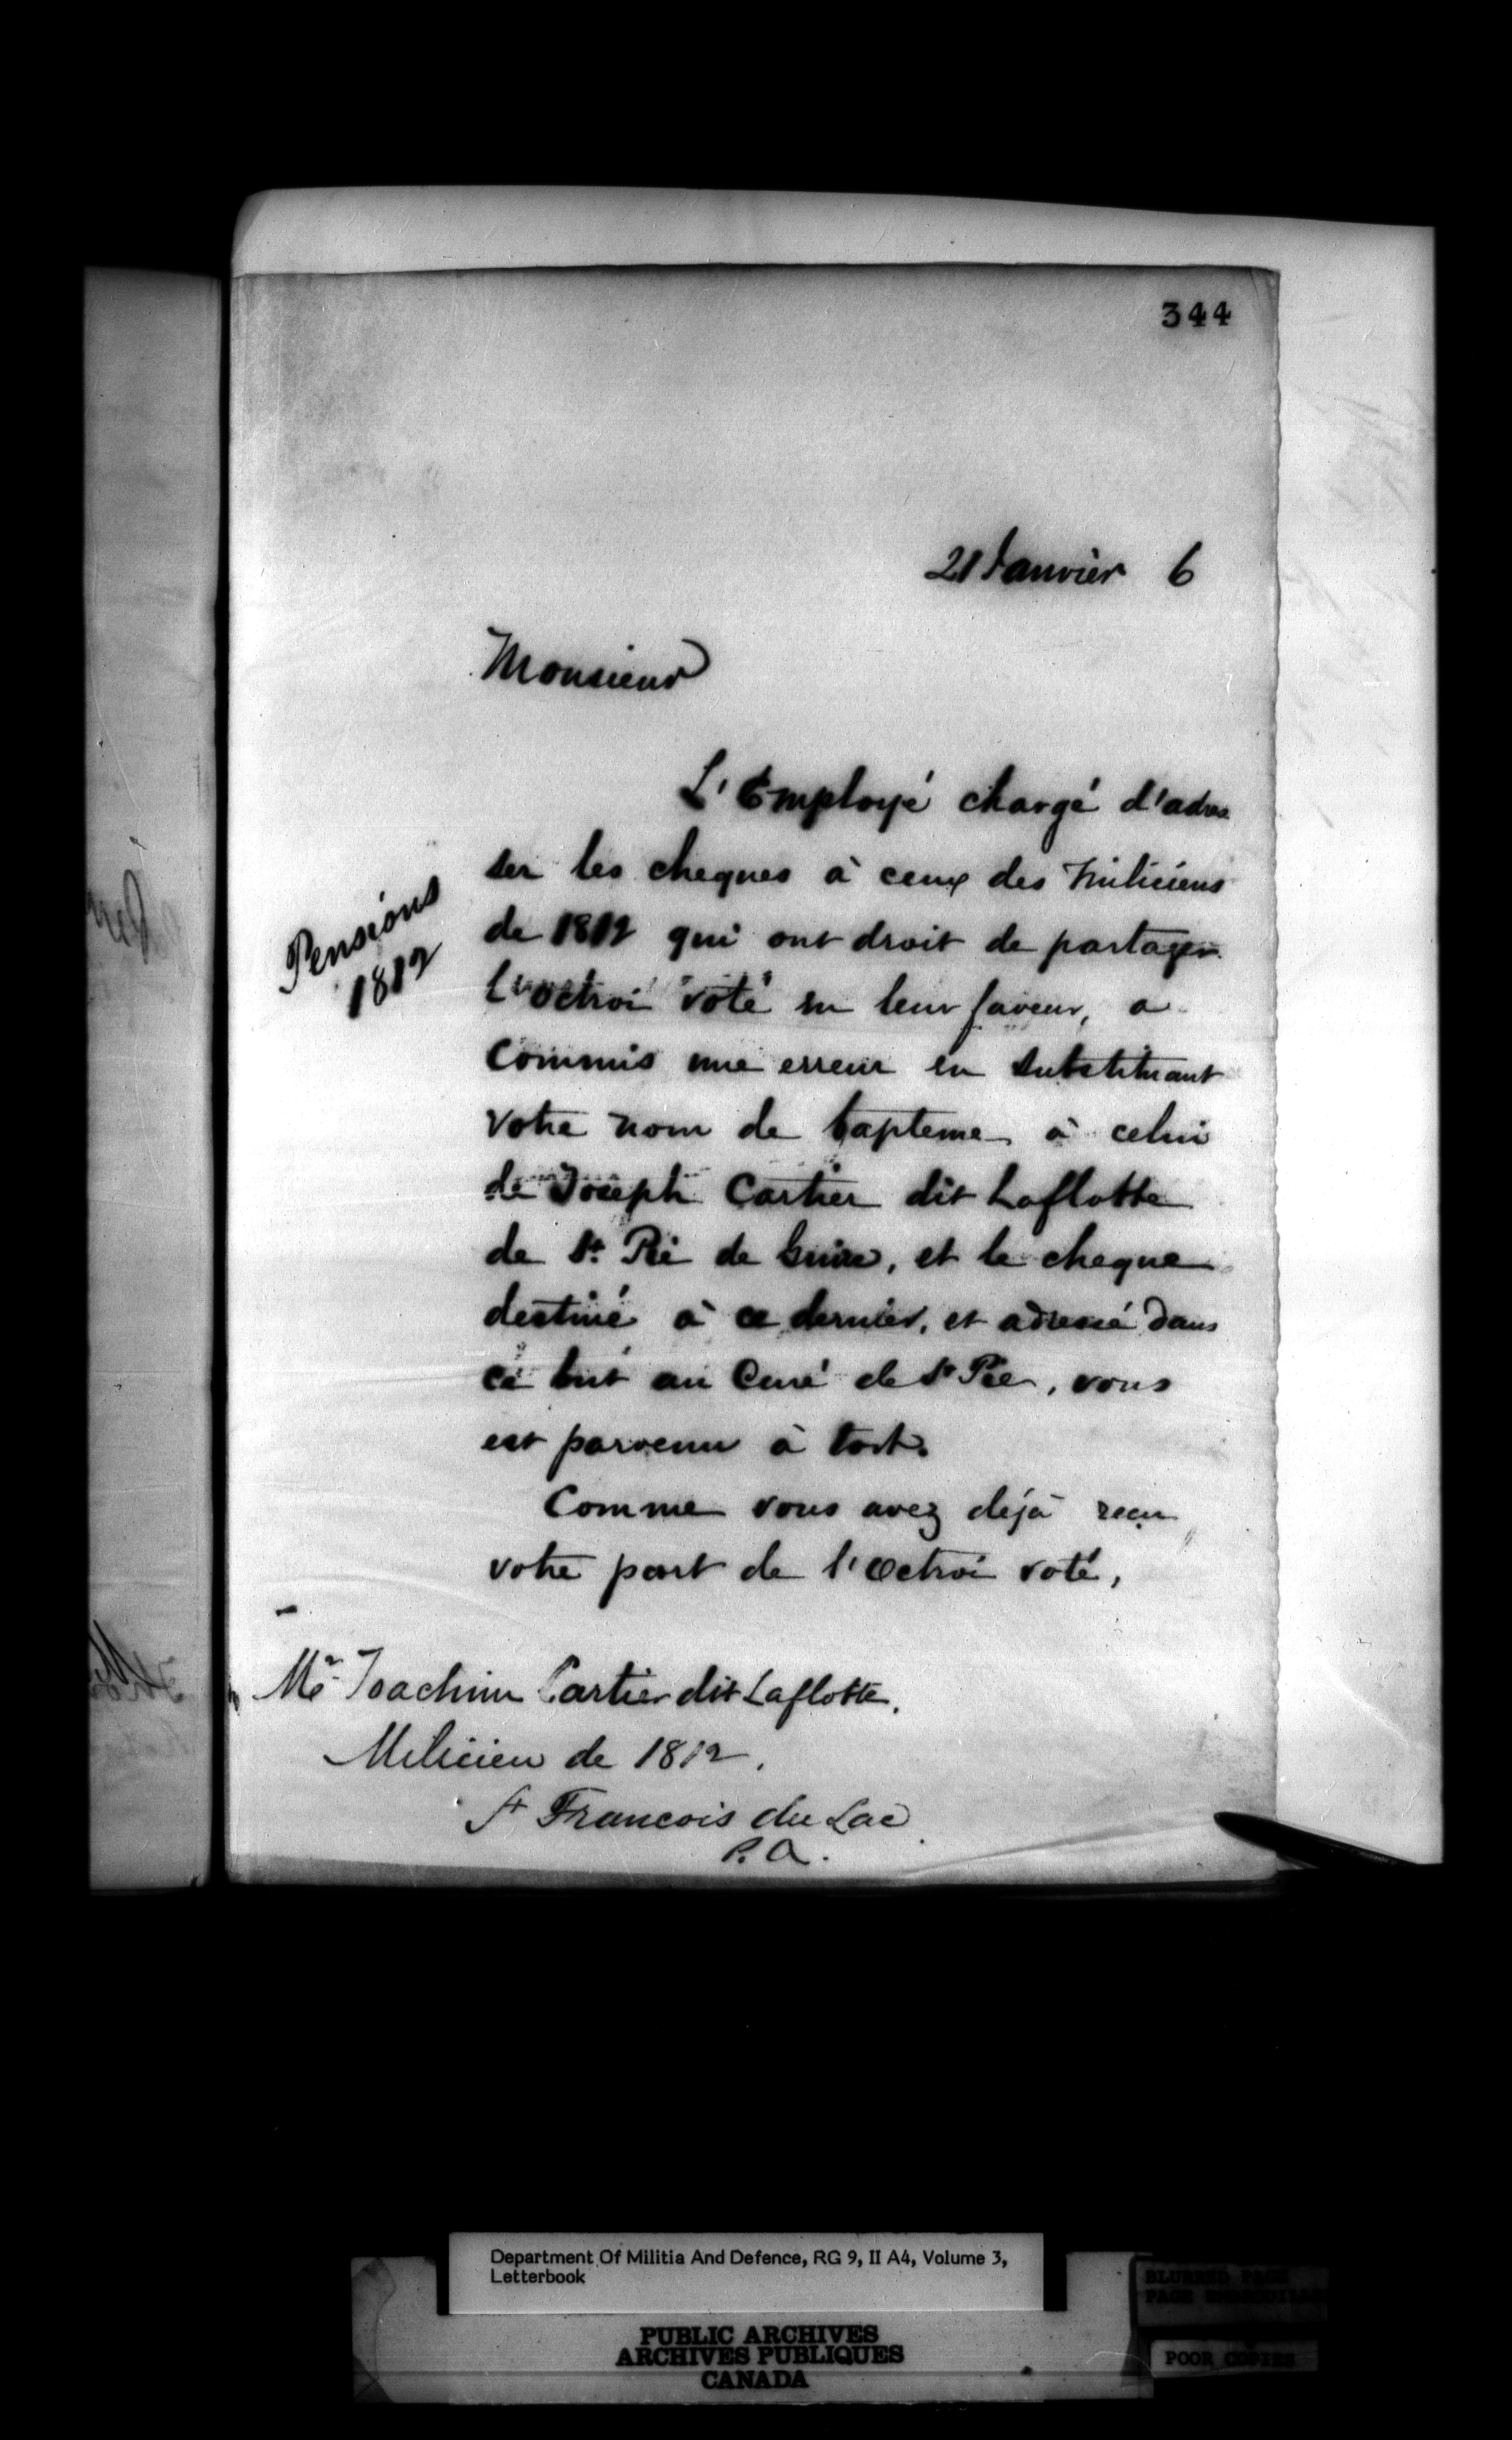 344
21 Janvier 6
Monsieur
L'Employé chargé d'adres
ser les cheques à ceux des Miliciens
de 1812 qui ont droit de partager
l'octroi voté en leur faveur, a
commis une erreur en substituant
votre nom de bapteme à celui
de Joseph Cartier dit Laflotte
de St. Pie de Guire, et le cheque
destiné à ce dernier, et adressé dans
ce but au Curé de St Pie, vous
est parvenu à tort.
Comme vous avez déjà reçu
votre part de l'Octroi voté,
Pensions
1812
Mr. Joachim Cartier dit Laflotte.
Milicien de 1812.
St Francois du Lac
P.Q.
Department Of Militia And Defence, RG 9, II A4, Volume 3,
Letterbook
PUBLIC ARCHIVES
ARCHIVES PUBLIQUES
CANADA
BLURRED PAGE
PAGE
POOR COPIES